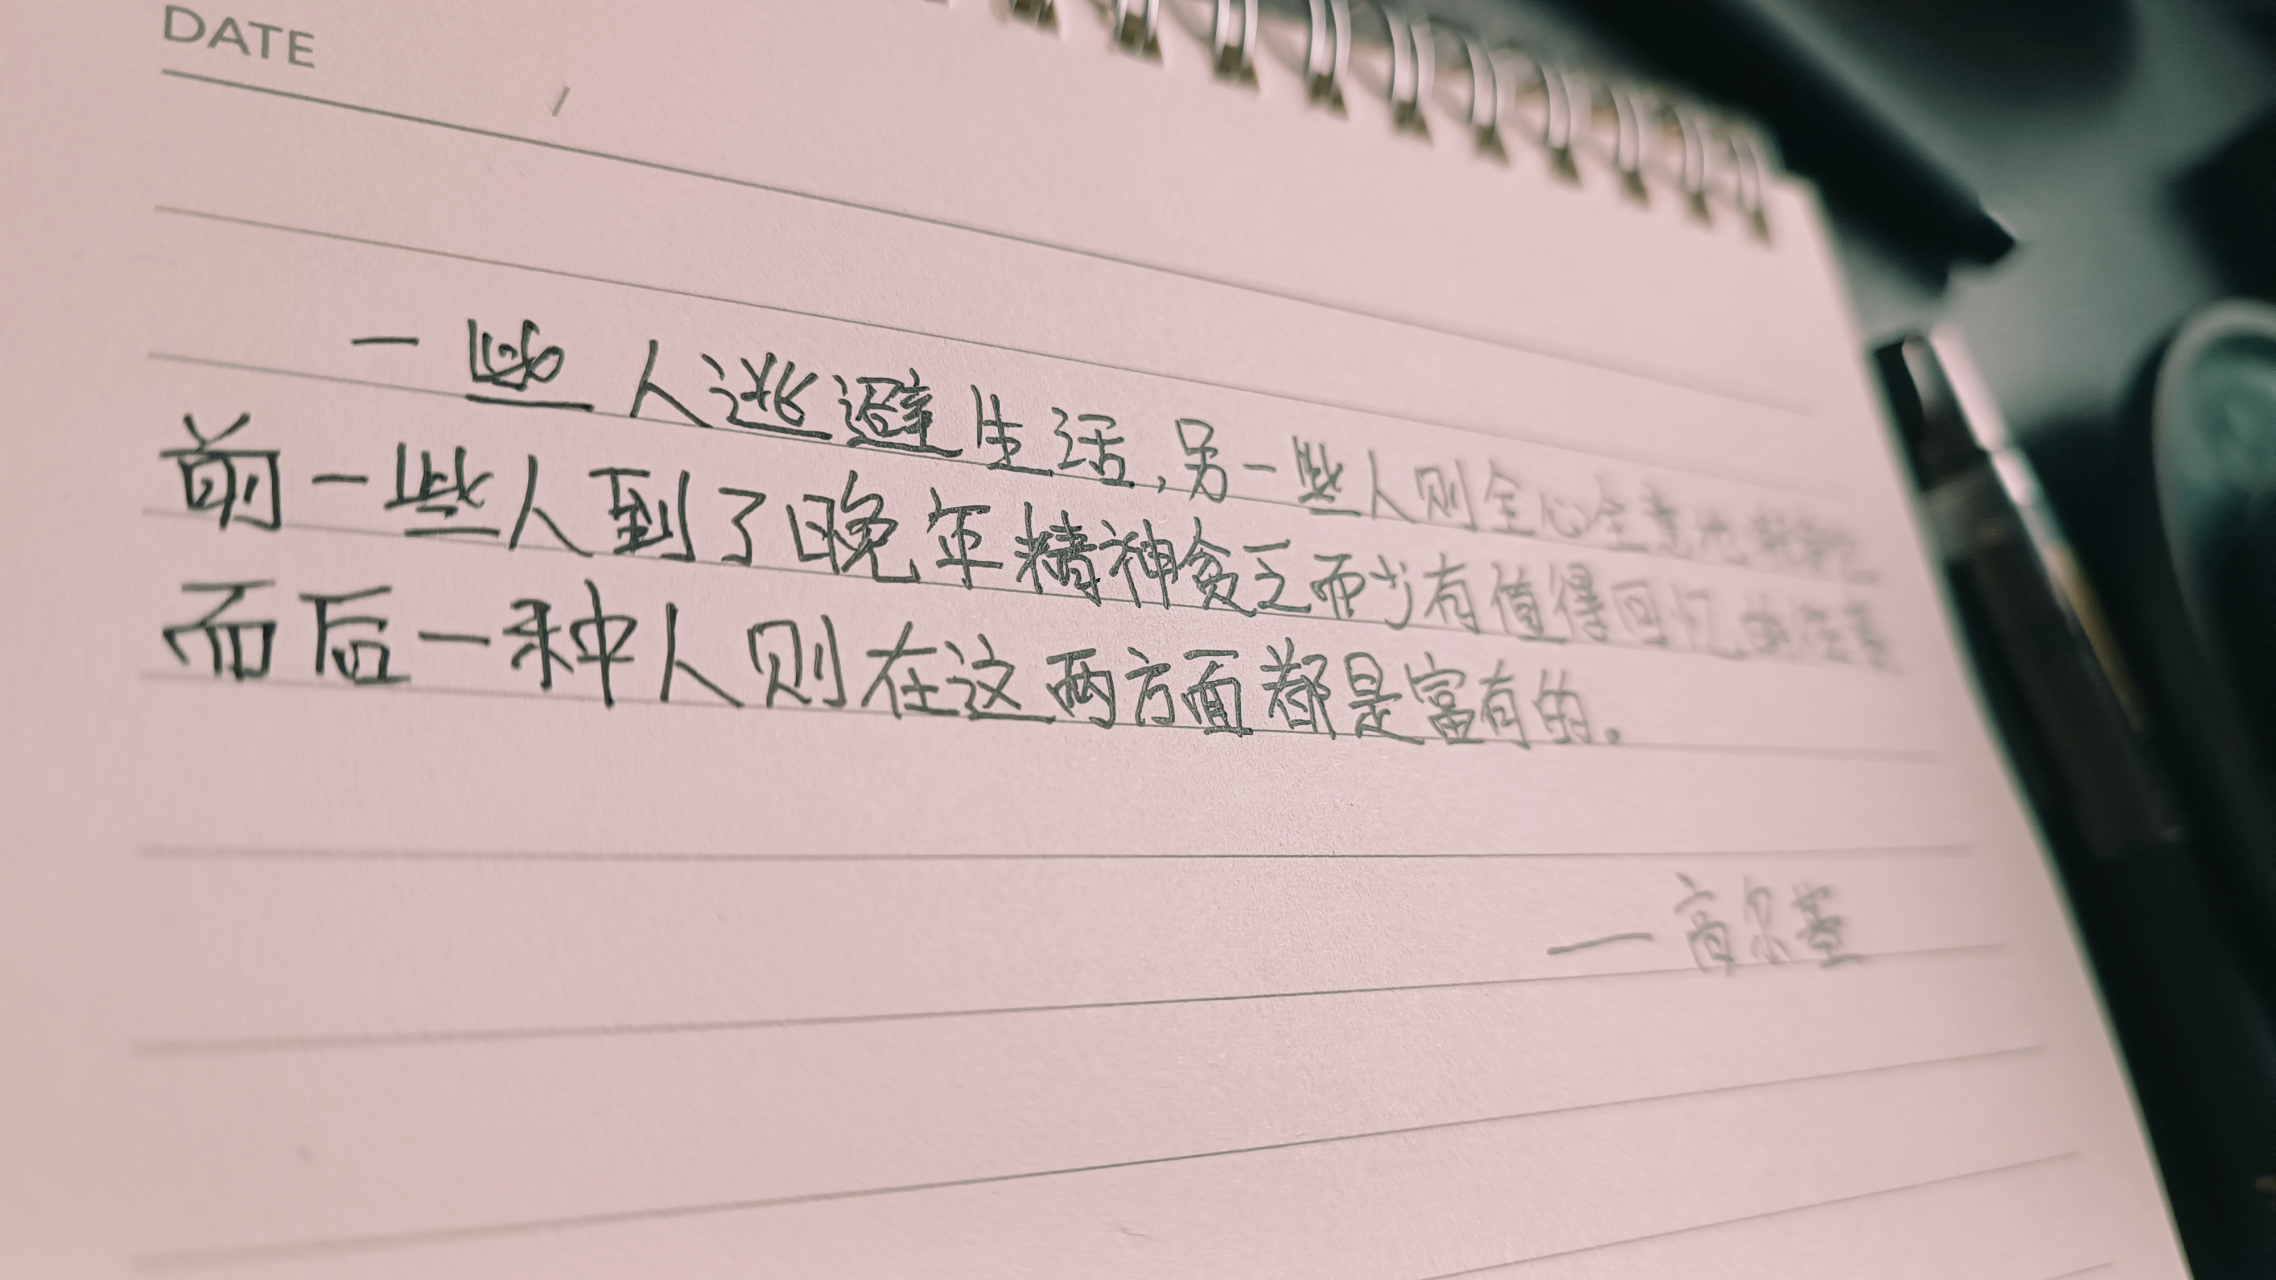 DATE
/
一些人逃避生活,另一些人则全心全意地
前一些人到了晚年精神贫乏而少有值得回忆的往事
而后一种人则在这两方面都是富有的。
——高尔基